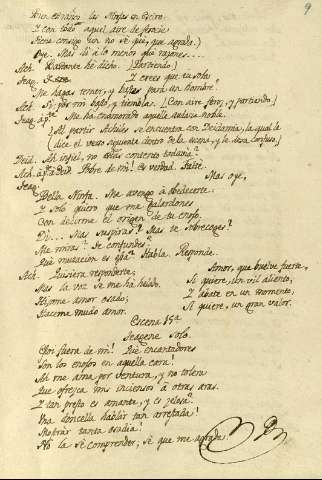 9
Aun estraños las Ninfas en Esciro.
Y con todo aquel aire de fiereza
tiene consigo un no se que, que agrada.)
Oye. Mas di a lo menos que razones....
Ach. Bastante he dicho. (Partiendo)
Teag. Y crees que tu sola
Me hagas temer, y bastes para un hombre?
Ach. Si por mi basto, y tiemblas. (Con aire fiero, y partiendo)
Teag. Me ha enamorado aquella audacia noble.
(Al partir Achiles se encuentra con Deidamia, la qual le
dice el verso siguiente dentro de la escena, y le deja confuso.)
Deid. Ah infiel, no estás contento todavia?
Ach. Pobre de mi! Es verdad. Falté.
Teag. Mas oye,
Bella Ninfa. Me avengo à obedecerte.
Y solo quiero que me galardones
Con decirme el origen de tu enojo.
Di... Mas suspiras? Mas te sobrecoges?
Me miras? Te confundes?
Que mutacion es esta? Habla. Responde.
Ach. Quisiera responderte;
Mas la voz se me ha huido.
Hizome amor osado;
Haceme mudo amor.
Amor, que buelve fuerte,
Si quiere, un vil aliento,
Y abate en un momento,
Si quiere, un gran valor.
Escena 15.ª
Teagene solo.
Estoi fuera de mi! Que encantadores
Son los enojos en aquella cara!
Mi me ama por ventura, y no tolera
Que ofrezca mis inciensos à otras aras.
Y tan presto es amante, y es zelosa?
Una doncella hablar tan arrestada!
Mostrar tanta osadia!
No la sè comprender; Sè que me agrada.